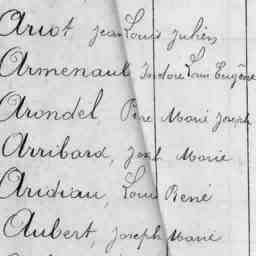 Ariot, Jean Louis Julien
Armenault Isidore Louis Eugène
Arondel, Pierre Marie Joseph
Arribard, Joseph Marie
Aridiau, Louis René
Aubert, Joseph Marie